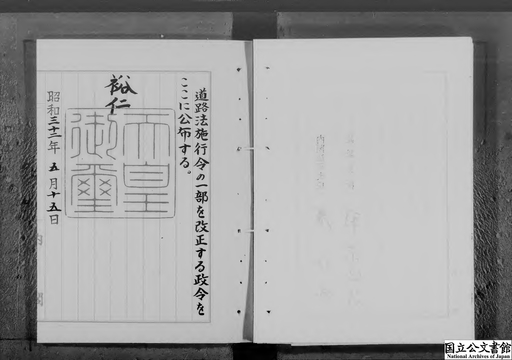 道路法施行令の一部を改正する政令を
ここに公布する。
裕仁
天皇
御璽
昭和三十三年五月十五日
国立公文書館
National Archives of Japan